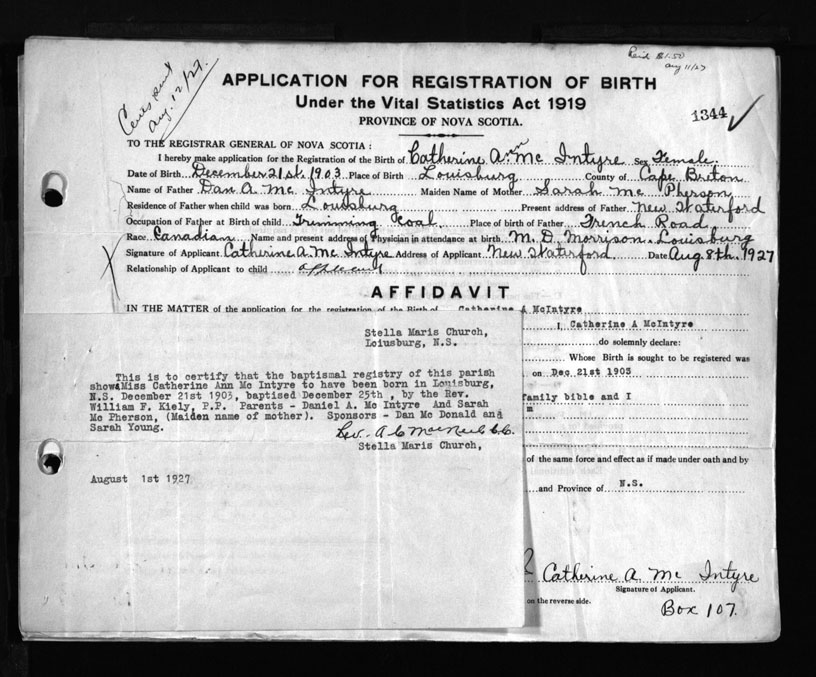 Paid $1.50
Aug 11/27
Cert sent
Aug. 12/27.
APPLICATION FOR REGISTRATION OF BIRTH
Under the Vital Statistics Act 1919
PROVINCE OF NOVA SCOTIA.
1344
TO THE REGISTRAR GENERAL OF NOVA SCOTIA:
I hereby make application for the Registration of the Birth of Catherine Ann Mc Intyre Sex Female.
Date of Birth December 21st. 1903 Place of Birth Louisburg County of Cape Breton
Name of Father Dan A. Mc Intyre Maiden Name of Mother Sarah Mc Pherson
Residence of Father when child was born Louisburg Present address of Father New Waterford
Occupation of Father at Birth of child Trimming Coal Place of birth of Father French Road
Race Canadian Name and present address of Physician in attendance at birth M. D. Morrison, Louisburg
Signature of Applicant Catherine A. Mc Intyre Address of Applicant New Waterford Date Aug. 8th. 1927
Relationship of Applicant to child applicant
AFFIDAVIT
IN THE MATTER of the application for the registration of the Birth of Catherine A McIntyre
I, Catherine A McIntyre
do solemnly declare:
Whose Birth is sought to be registered was
on Dec 21st 1903
family bible and I
of the same force and effect as if made under oath and by
and Province of N.S.
Catherine A. Mc Intyre
Signature of Applicant.
on the reverse side.
Box 107.
Stella Maris Church,
Loiusburg, N.S.
This is to certify that the baptismal registry of this parish
shows Miss Catherine Ann Mc Intyre to have been born in Louisburg,
N.S. December 21st 1903, baptised December 25th , by the Rev.
William F. Kiely, P.P. Parents - Daniel A. Mc Intyre And Sarah
Mc Pherson, (Maiden name of mother). Sponsors - Dan Mc Donald and
Sarah Young.
Rev. A C MacNeil C.C.
Stella Maris Church,
August 1st 1927